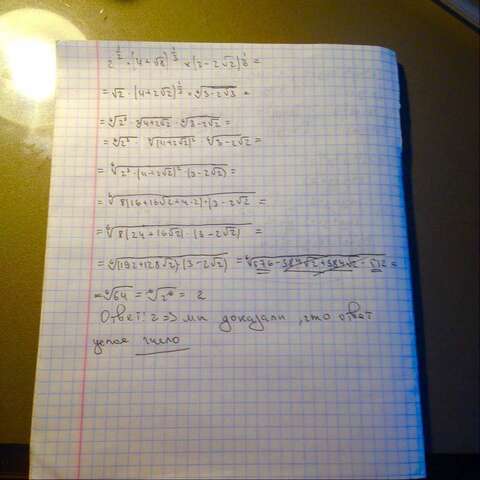 2^{1/2} · (4+√8)^{1/3} × (3-2√2)^{1/6} =
= √2 · (4+2√2)^{1/3} × ⁶√3-2√3 =
= ⁶√2³ · ³√4+2√2 · ⁶√3-2√2 =
= ⁶√2³ · ⁶√(4+2√2)² · ⁶√3-2√2 =
= ⁶√2³ · (4+2√2)² · (3-2√2) =
= ⁶√8(16+16√2+4·2)·(3-2√2 =
= ⁶√8(24+16√2)·(3-2√2) =
= ⁶√(192+128√2)·(3-2√2) = ⁶√576-384√2+384√2-512 =
= ⁶√64 = ⁶√2⁶ = 2
Ответ: 2 => мы доказали, что ответ
целое число